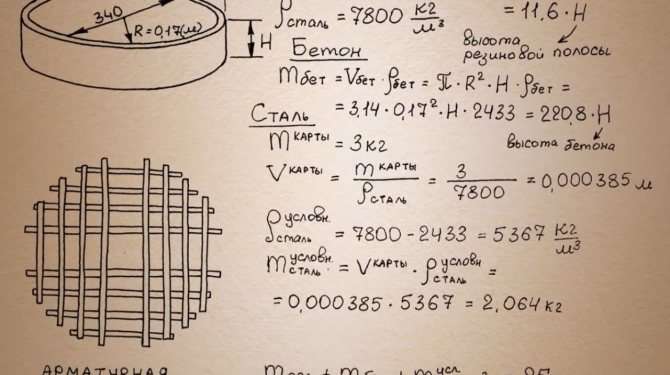 340
R=0,17(м)
H
ρсталь = 7800 кг/м³
= 11,6·H
высота
резиновой полосы
Бетон
mбет = Vбет·ρбет = π·R²·H·ρбет =
= 3,14·0,17²·H·2433 = 220,8·H
высота бетона
Сталь
mкарты = 3кг
Vкарты = mкарты/ρсталь = 3/7800 = 0,000385 м
ρусловн.сталь = 7800-2433 = 5367 кг/м³
mусловн.сталь = Vкарты·ρусловнсталь =
= 0,000385·5367 = 2,064кг
АРМАТУРНАЯ